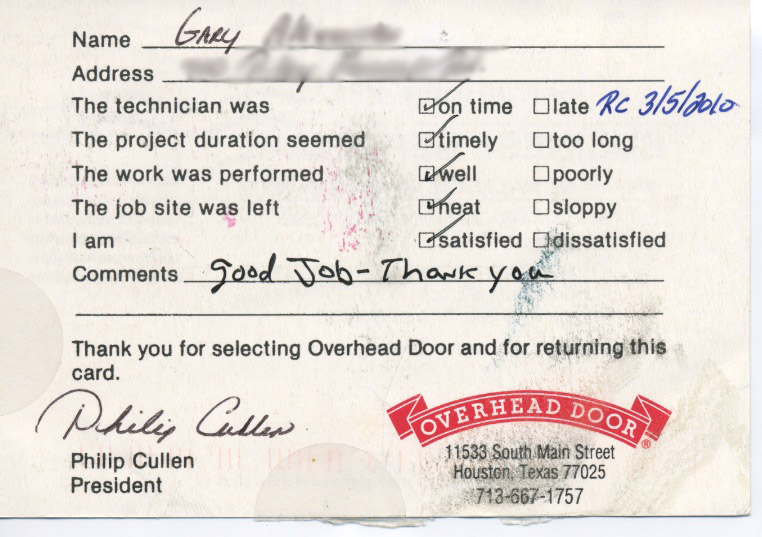 Name Gary
Address
The technician was ☑ on time ☐ late RC 3/5/2010
The project duration seemed ☑ timely ☐ too long
The work was performed ☑ well ☐ poorly
The job site was left ☑ neat ☐ sloppy
I am ☑ satisfied ☐ dissatisfied
Comments Good Job - Thank you
Thank you for selecting Overhead Door and for returning this
card.
Philip Cullen
Philip Cullen
President
OVERHEAD DOOR®
11533 South Main Street
Houston, Texas 77025
713-667-1757